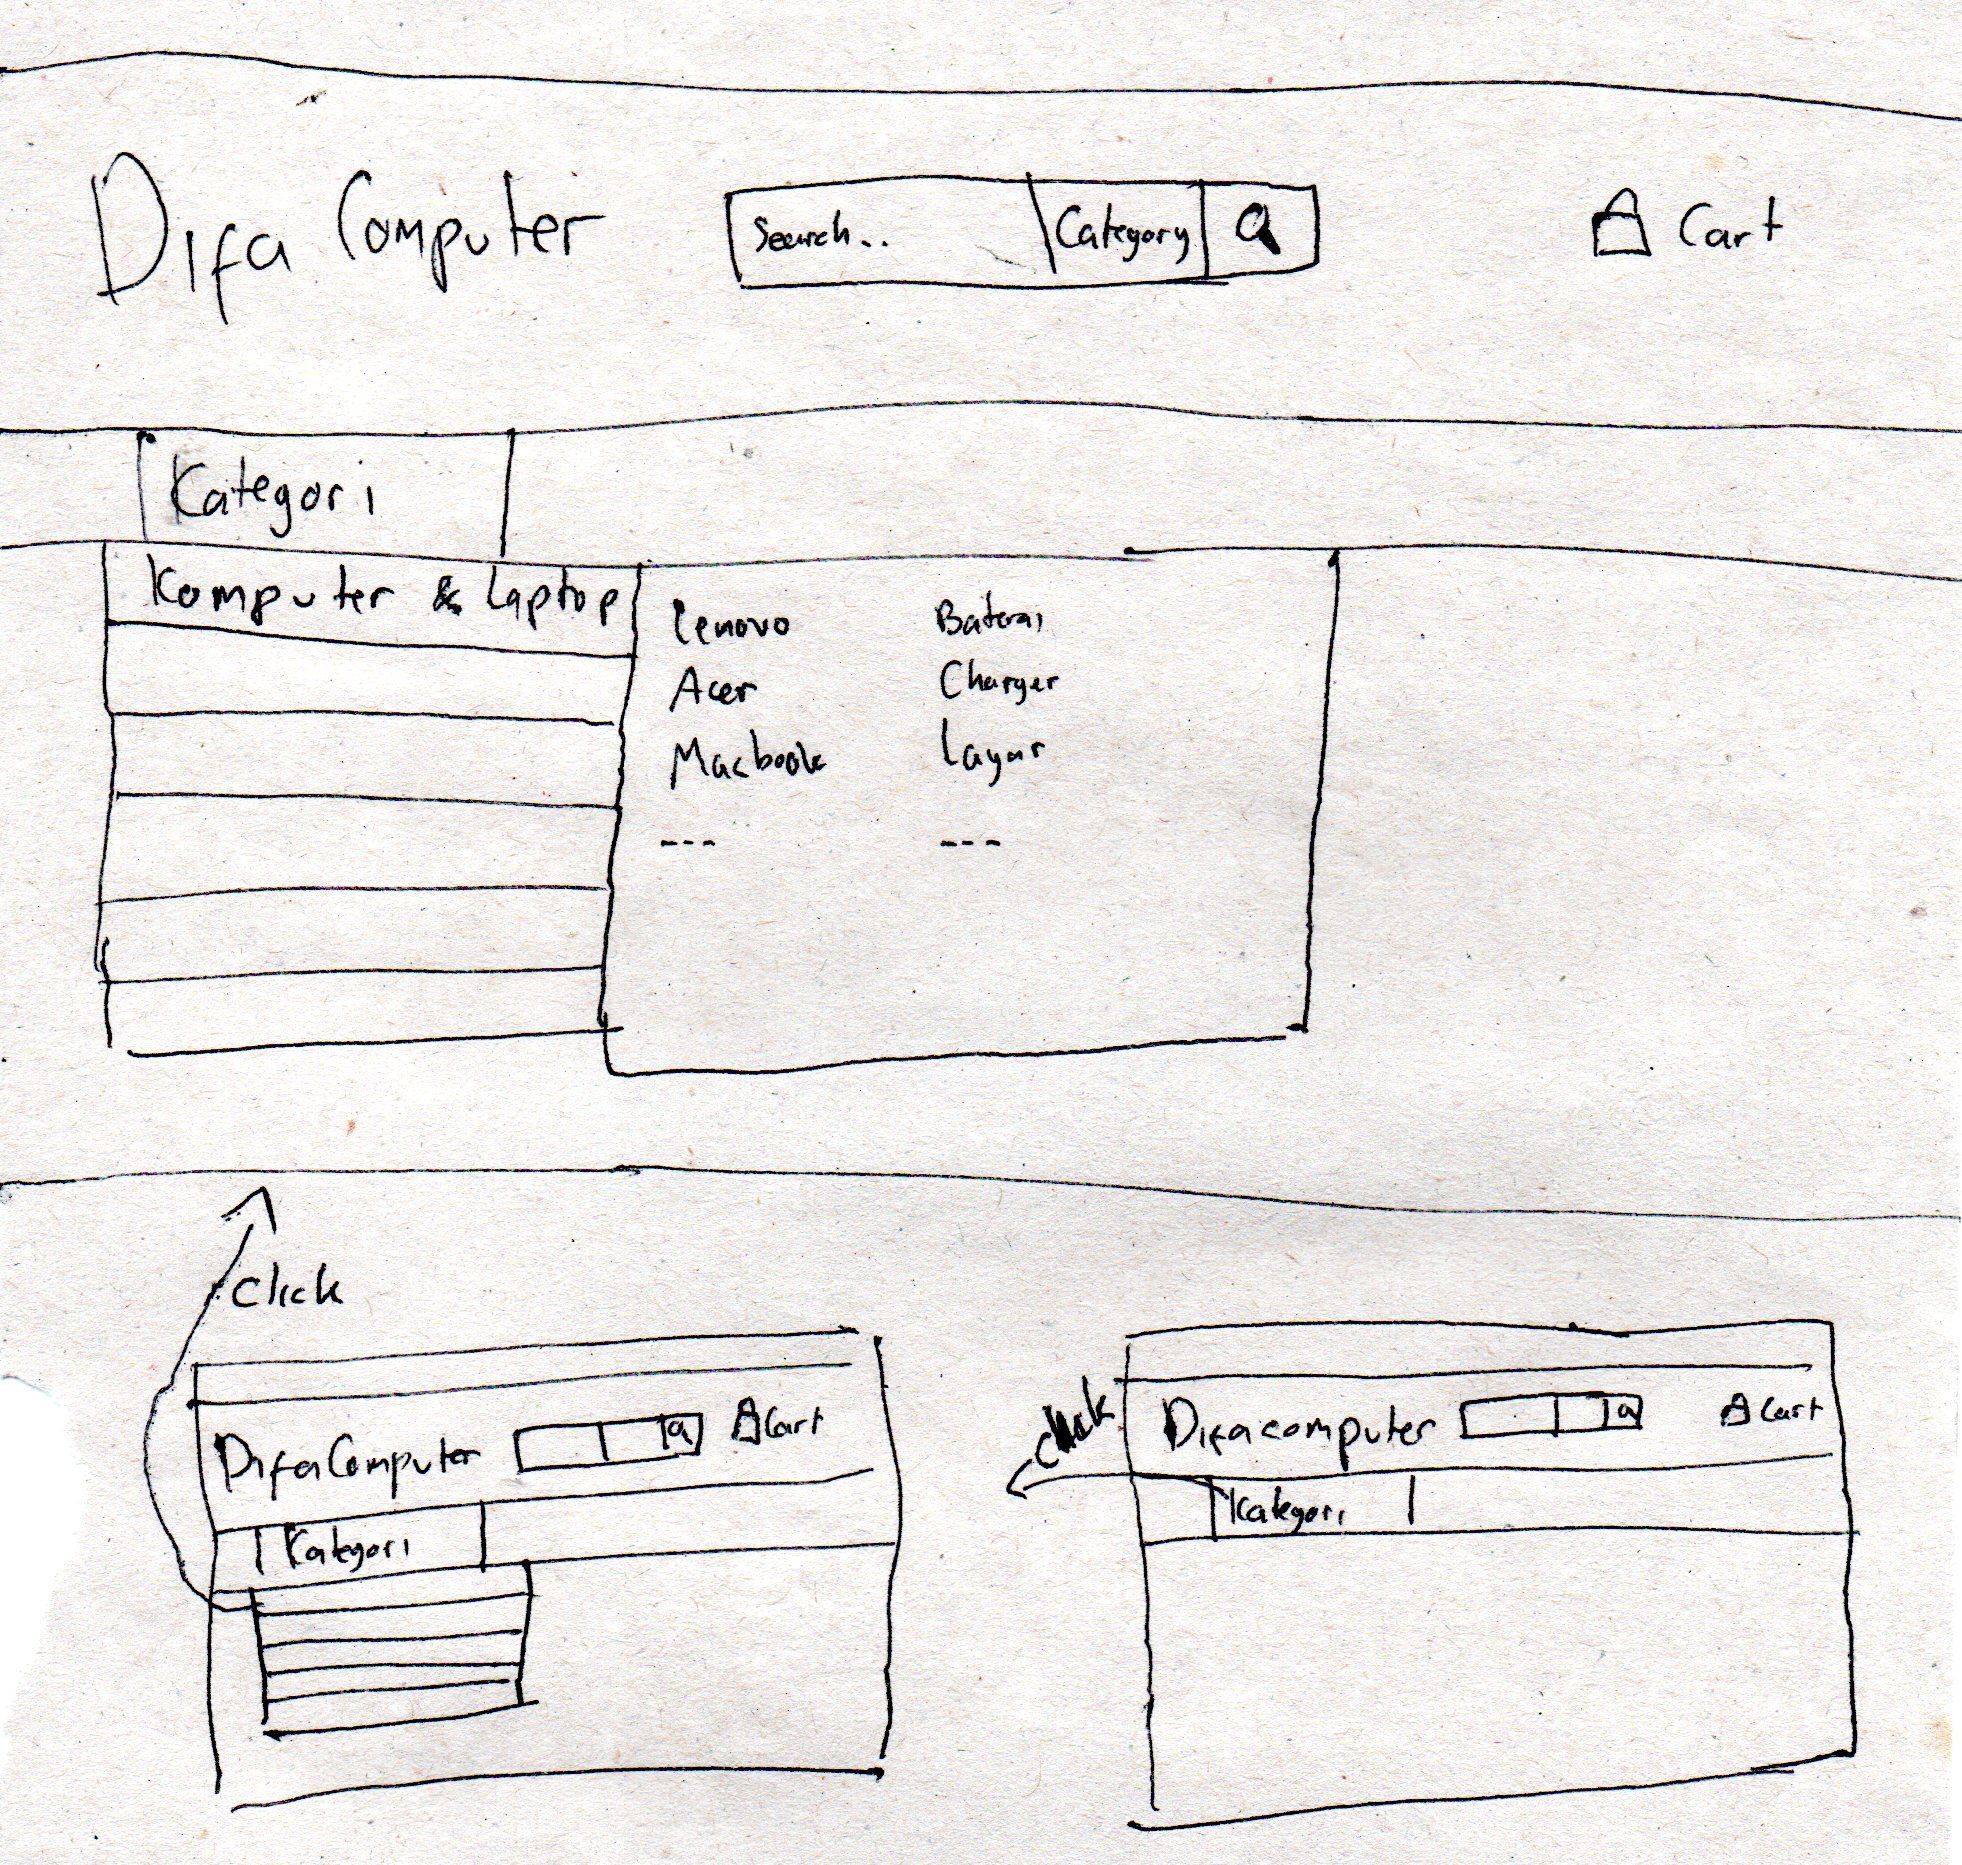 Difa Computer
Search.. Category
Cart
Kategori
Komputer & Laptop
Lenovo Baterai
Acer Charger
Macbook Layar
--- ---
Click
Difa Computer Cart
Kategori
Click
Difacomputer Cart
Kategori